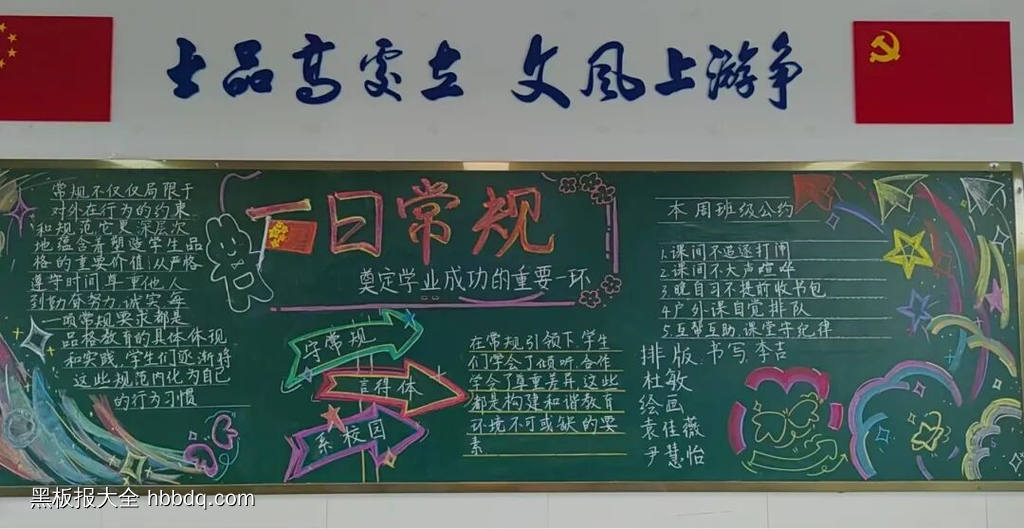 士品高爱立 文风上游争
常规不仅仅局限于
对外在行为的约束
和规范它更深层次
地蕴含着塑造学生品
格的重要价值从严格
遵守时间尊重他人
到勤奋努力诚实每
一项常规要求都是
品格教育的具体体现
和实践,学生们逐渐将
这些规范内化为自己
的行为习惯
一日常规
奠定学业成功的重要一环
守常规
言得体
系校园
在常规引领下,学生
们学会了倾听、合作
学会了尊重差异,这些
都是构建和谐教育
环境不可或缺的要
素
本周班级公约
1.课间不追逐打闹
2.课间不大声喧哗
3.晚自习不提前收书包
4户外课自觉排队
5.互帮互助,课堂守纪律
排版书写李吉
杜敏
绘画
袁佳薇
尹慧怡
黑板报大全 hbbdq.com